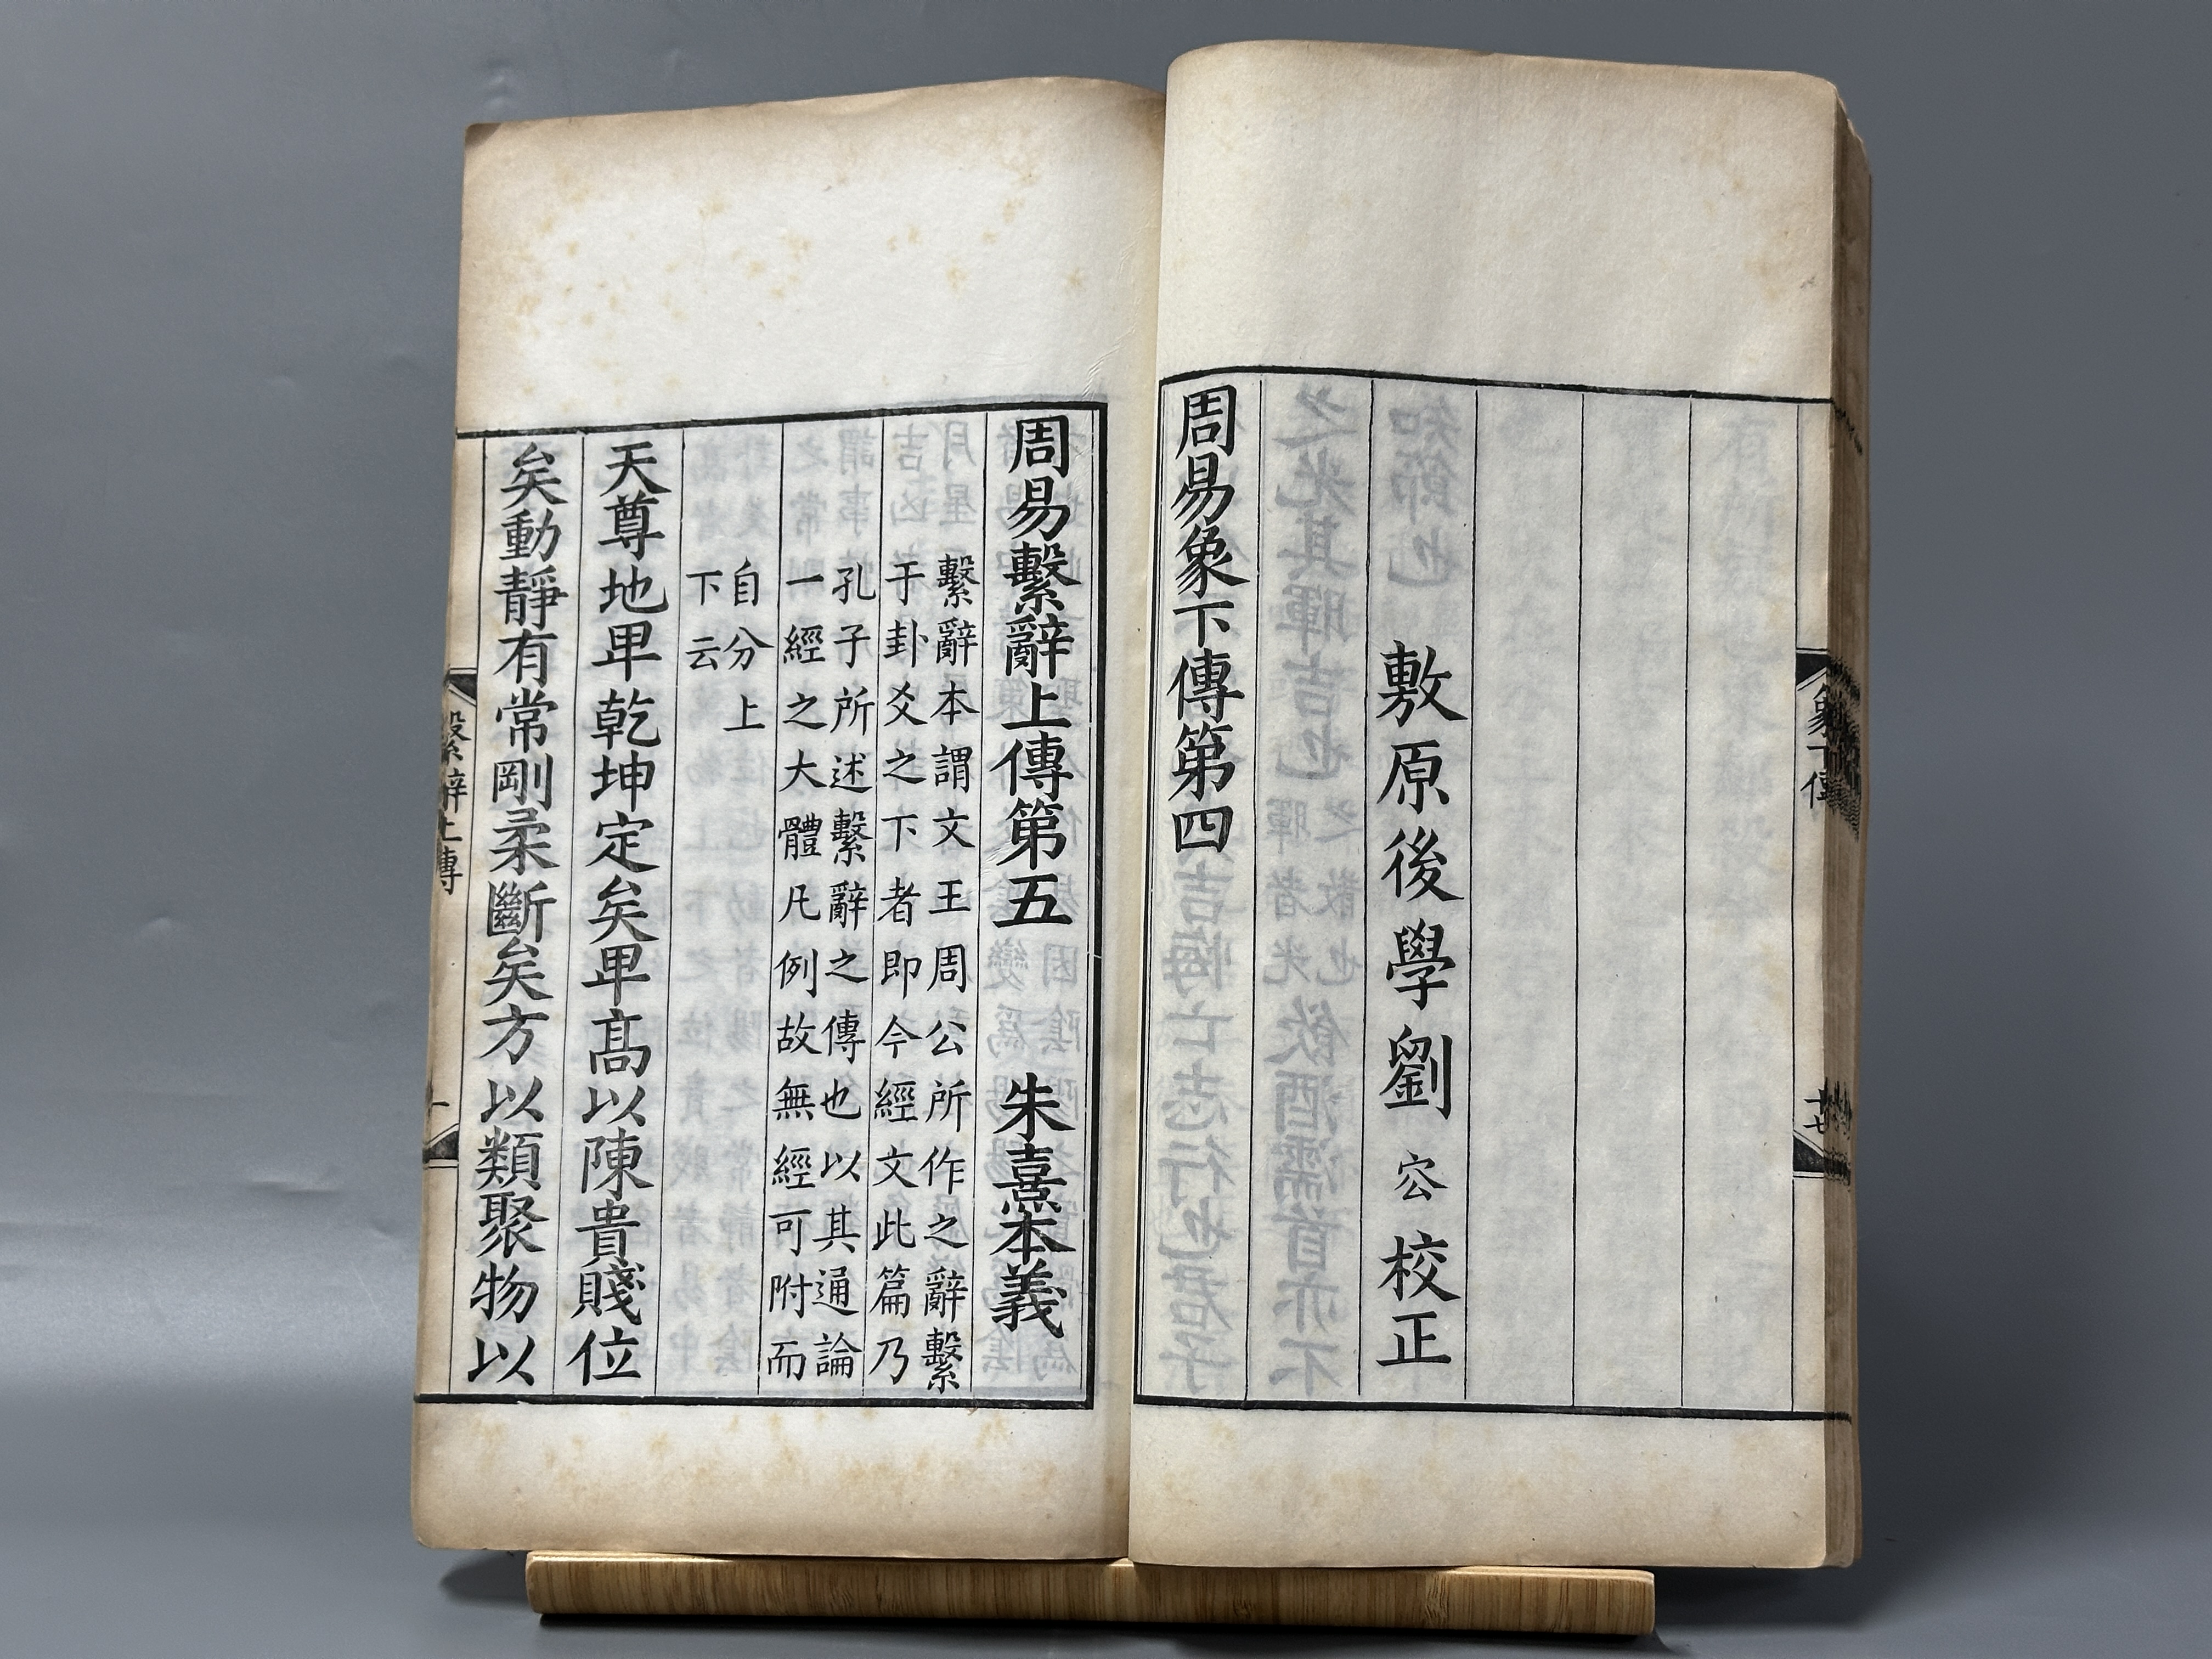 象下傳
廿七
敷原後學劉㝐校正
周易象下傳第四
周易繫辭上傳第五 朱熹本義
繫辭本謂文王周公所作之辭繫
于卦爻之下者即今經文此篇乃
孔子所述繫辭之傳也以其通論
一經之大體凡例故無經可附而
自分上
下云
天尊地卑乾坤定矣卑髙以陳貴賤位
矣動靜有常剛柔斷矣方以類聚物以
繫辭上傳
一